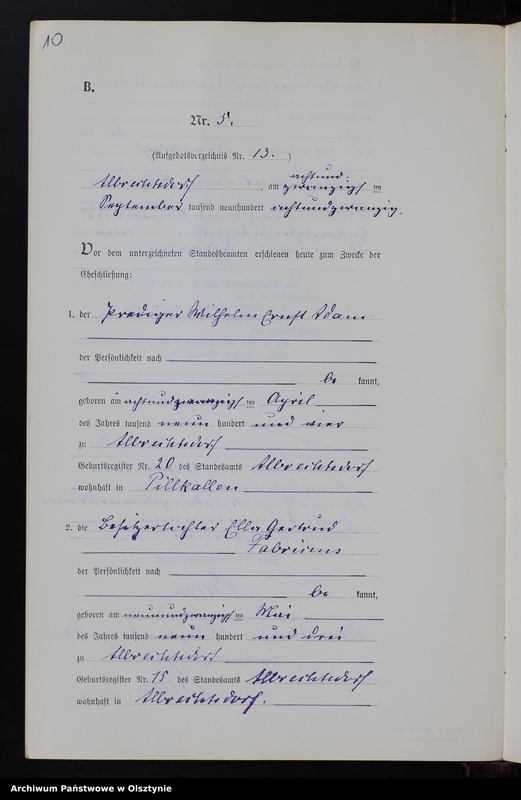 10
B.
Nr. 5.
(Aufgebotsverzeichnis Nr. 13. )
achtund-
Albrechtsdorf, am zwanzigsten
September tausend neunhundert achtundzwanzig.
Vor dem unterzeichneten Standesbeamten erschienen heute zum Zwecke der
Eheschließung:
1. der Prediger Wilhelm Ernst Adam
der Persönlichkeit nach
be kannt,
geboren am achtundzwanzigsten April
des Jahres tausend neun hundert und vier
zu Albrechtsdorf
Geburtsregister Nr. 20 des Standesamts Albrechtsdorf
wohnhaft in Pillkallen
2. die Besitzertochter Ella Gertrud
Fabricius
der Persönlichkeit nach
be kannt,
geboren am neunundzwanzigsten Mai
des Jahres tausend neun hundert und drei
zu Albrechtsdorf
Geburtsregister Nr. 15 des Standesamts Albrechtsdorf
wohnhaft in Albrechtsdorf.
Archiwum Państwowe w Olsztynie